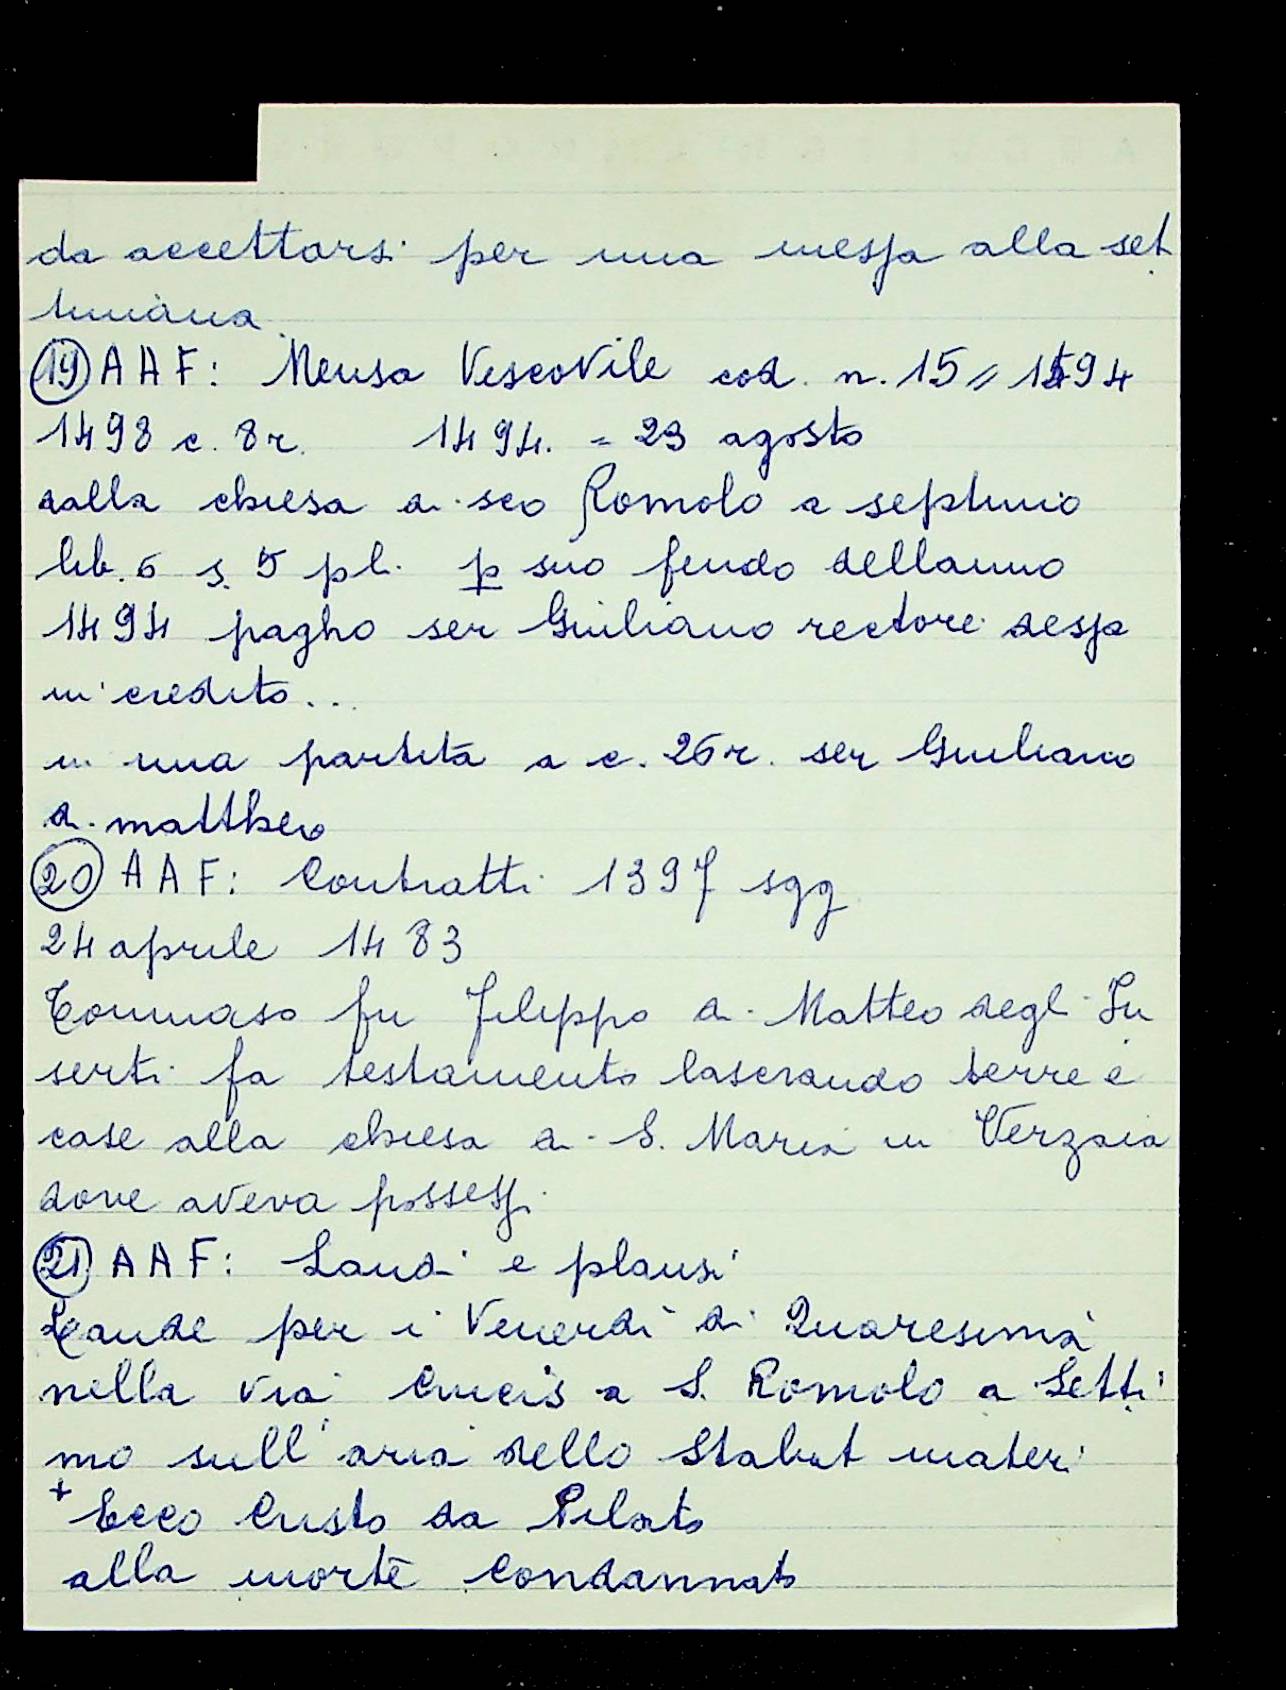 da accettarsi per una messa alla set
timana
19 AAF: Mensa Vescovile cod. n. 15 // 1494
1498 c. 8r. 1494. = 23 agosto
dalla chiesa di sco Romolo a septimo
lib. 6 s. 5 pl. p suo feudo dellanno
1494 pagho ser Giuliano rectore dessa
in credito...
in una partita a c. 26r. ser Giuliano
di mattheo
20 AAF: Contratti 1397 sgg
24 aprile 1483
Tommaso fu Filippo di Matteo degl In
serti fa testamento lasciando terre e
case alla chiesa di S. Maria in Verzaia
dove aveva possessi
21 AAF: Laudi e plausi
Laude per i Venerdì di Quaresima
nella Via Crucis a S. Romolo a Setti
mo sull'aria dello Stabat mater:
+ Ecco Cristo da Pilato
alla morte condannato